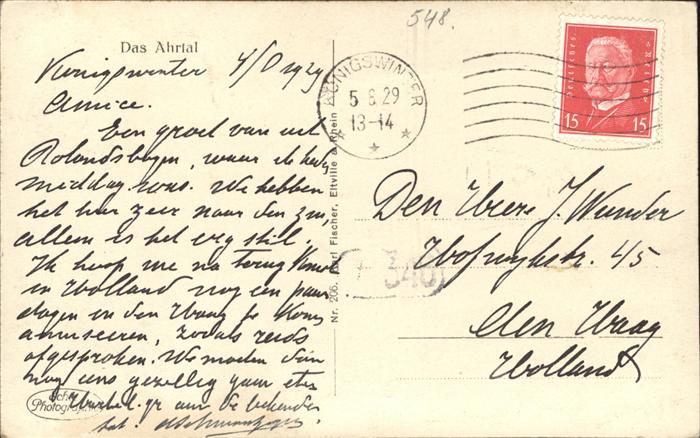 548.
Das Ahrtal
Königswinter 4/8 1929
Amice.
Een groet van uit
Rolandsbogen, waar ik heden
middag was. We hebben
het hier zeer naar den zin,
allem is het erg stil.
Ik hoop me na terug komst
in Holland nog een paar
dagen in den Haag te komen
amuseeren, zooals reeds
afgesproken. We moeten dan
nog eens gezellig gaan eten
Hartel. gr aan de bekenden
Echte
Photographie
Nr. 206. Karl Fischer, Eltville a. Rhein
KÖNIGSWINTER
5 8.29
13-14
Deutsches Reich
15 15
Den Heere J. Wunder
Hofwijkstr. 45
den Haag
Holland